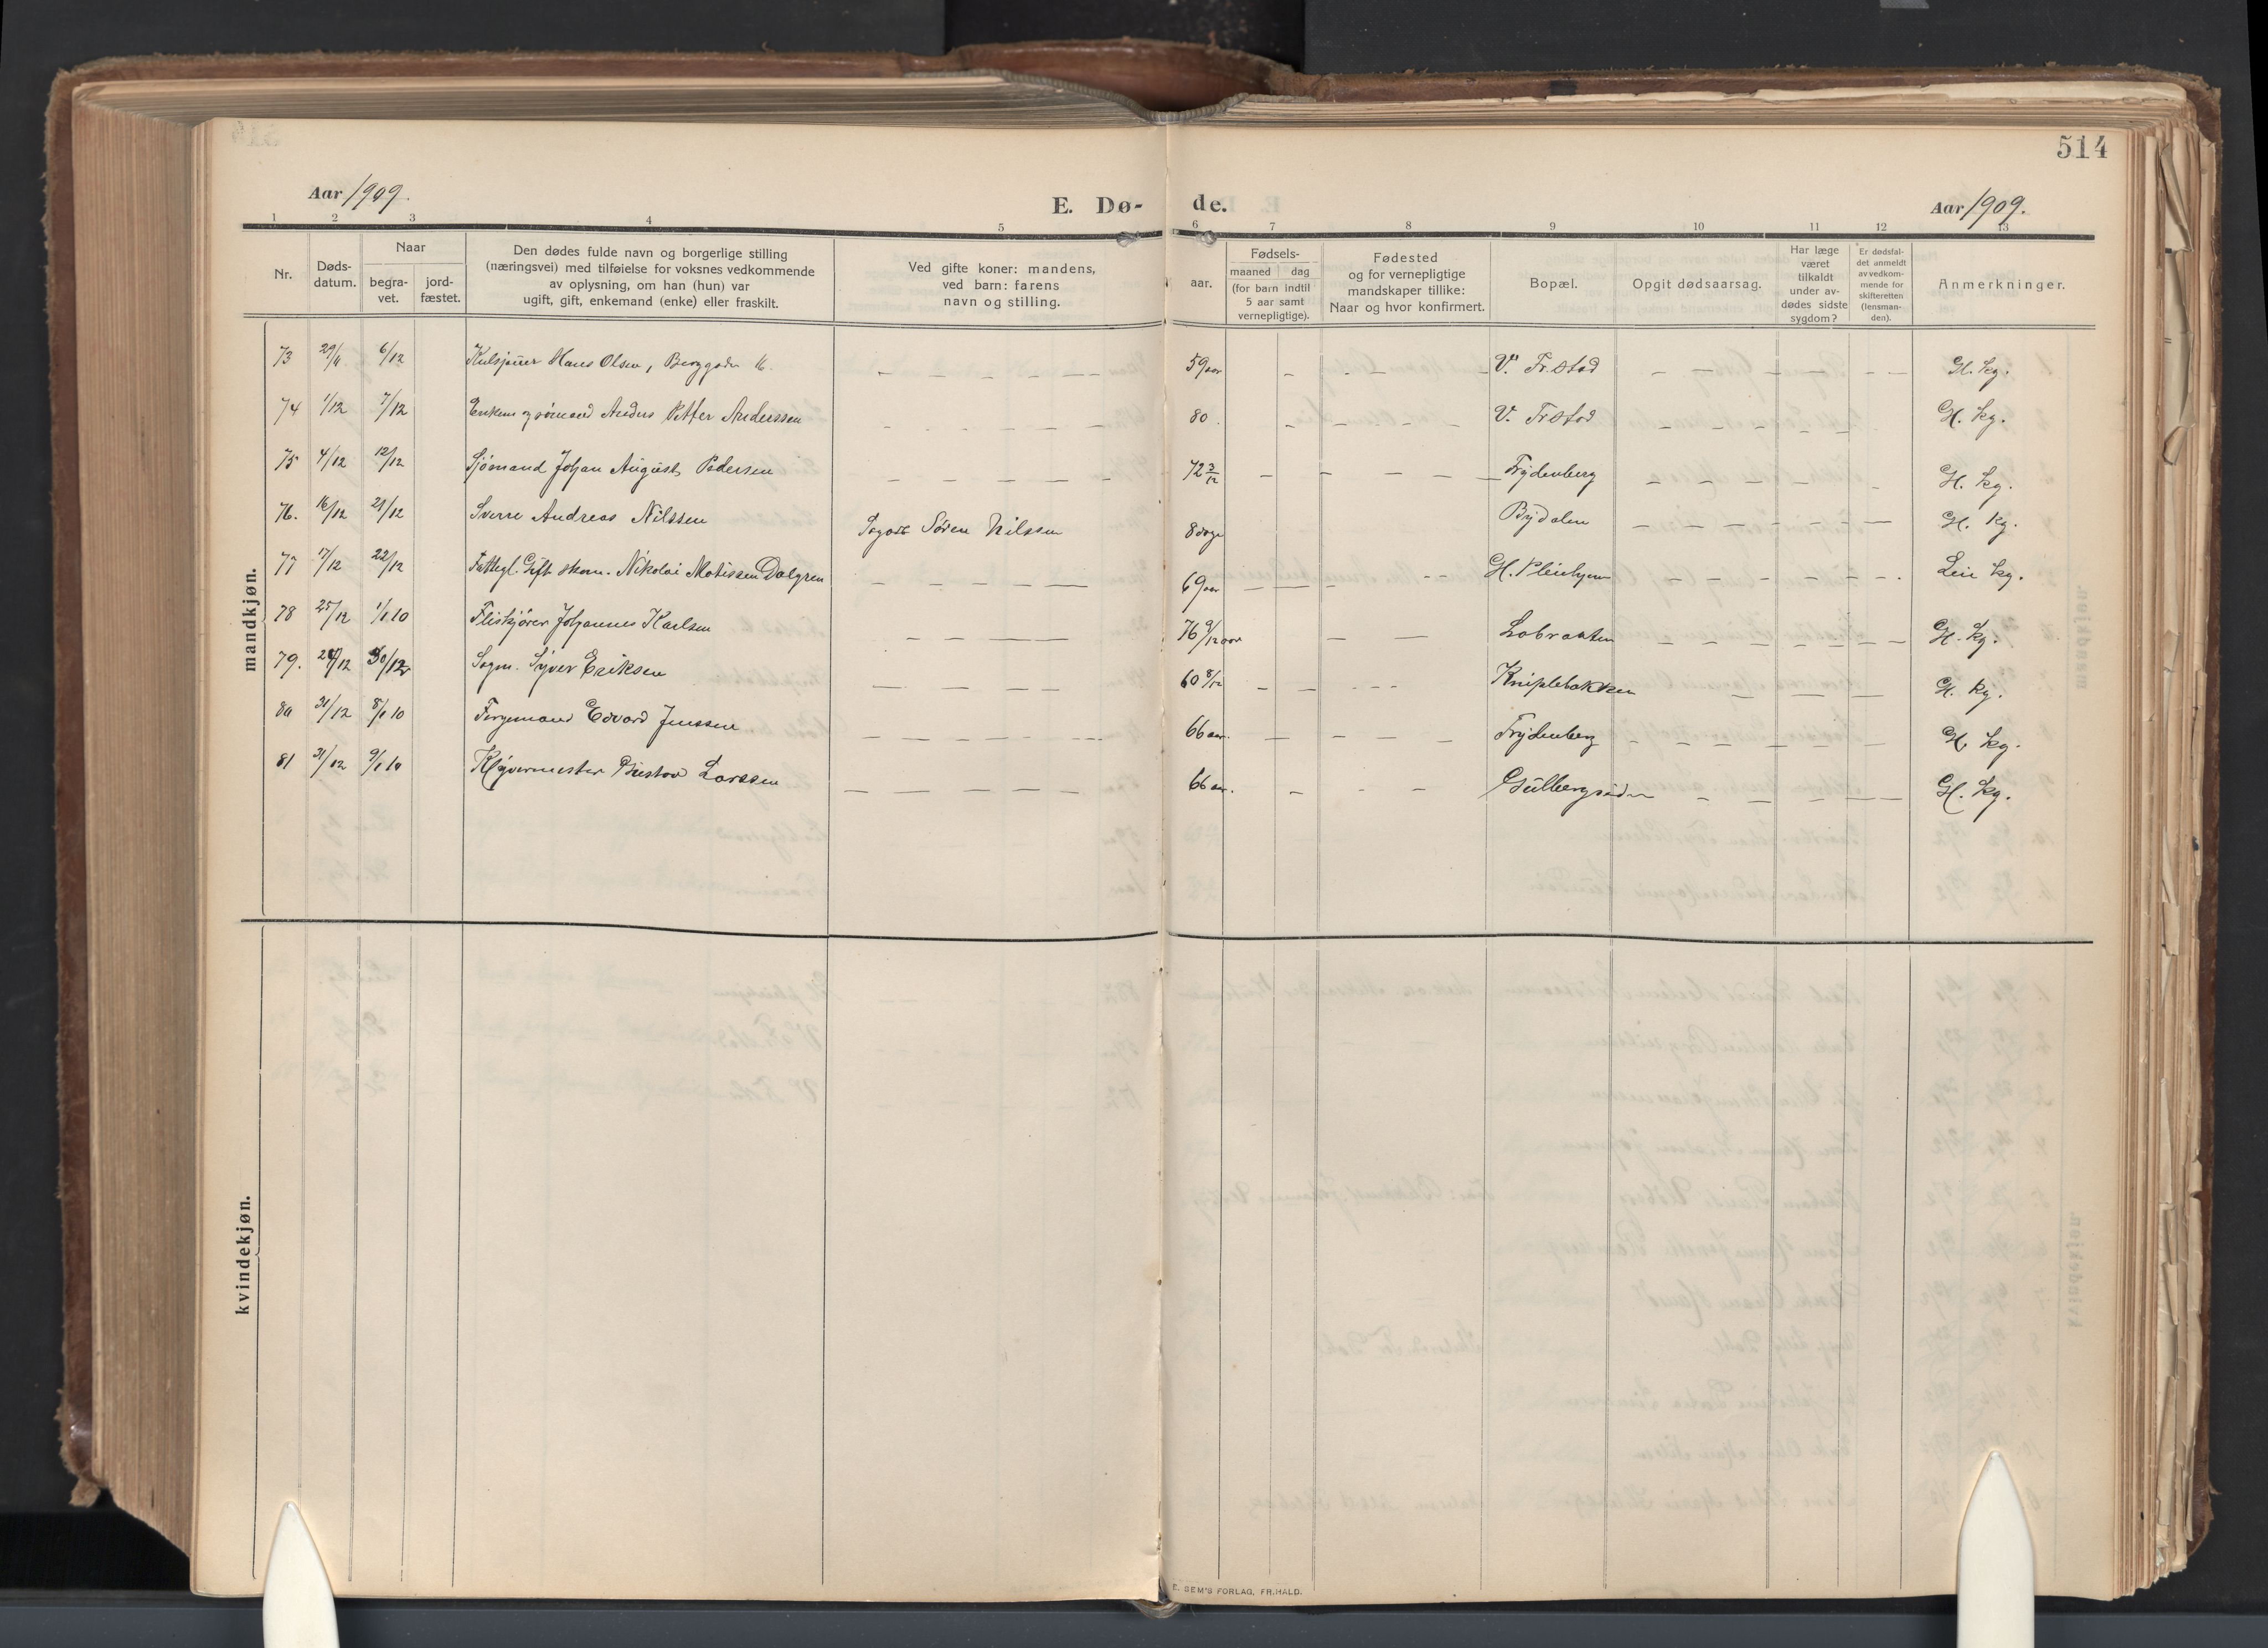 514
Aar 1909.
E. Dø- de.
Aar 1909.
1 2 3 4 5 6 7 8 9 10 11 12 13
Nr.
Døds-
datum.
Naar
begra-
vet.
jord-
fæstet.
Den dødes fulde navn og borgerlige stilling
(næringsvei) med tilføielse for voksnes vedkommende
av oplysning, om han (hun) var
ugift, gift, enkemand (enke) eller fraskilt.
Ved gifte koner: mandens,
ved barn: farens
navn og stilling.
aar.
Fødsels-
maaned dag
(for barn indtil
5 aar samt
vernepligtige).
Fødested
og for vernepligtige
mandskaper tillike:
Naar og hvor konfirmert.
Bopæl.
Opgit dødsaarsag.
Har læge
været
tilkaldt
under av-
dødes sidste
sygdom?
Er dødsfal-
det anmeldt
av vedkom-
mende for
skifteretten
(lensman-
den).
Anmerkninger.
mandkjøn.
73 29/11 6/12 Hans Olsen, 59 aar V. Fr.stad Gl. kg.
74 1/12 7/12 Anders Petter Anderssen 80. V. Fr.stad Gl. kg.
75 4/12 12/12 Sjømand Johan August Pedersen 72 3/12 Frydenberg Gl. kg.
76. 16/12 21/12 Sverre Andreas Nilssen Søren Nilssen 8 dage Bydalen Gl. kg.
77 17/12 22/12 Fattigl. Gift skom. Nikolai Matissen Dalgren 69 aar Gl. Pleiehjem Leie kg.
78 25/12 1/1 10 Fliskjører Johannes Karlsen 76 9/12 aar Labraaten Gl. kg.
79. 24/12 30/12 Sagm. Syver Eriksen 60 8/12 Kniplebakken Gl. kg.
80 31/12 8/1 10 Edvard Jenssen 66 aar. Frydenberg Gl. kg.
81 31/12 9/1 10 Kløvermester Gustav Larssen 66 aar. Gl. kg.
kvindekjøn.
E. SEM'S FORLAG, FR.HALD.